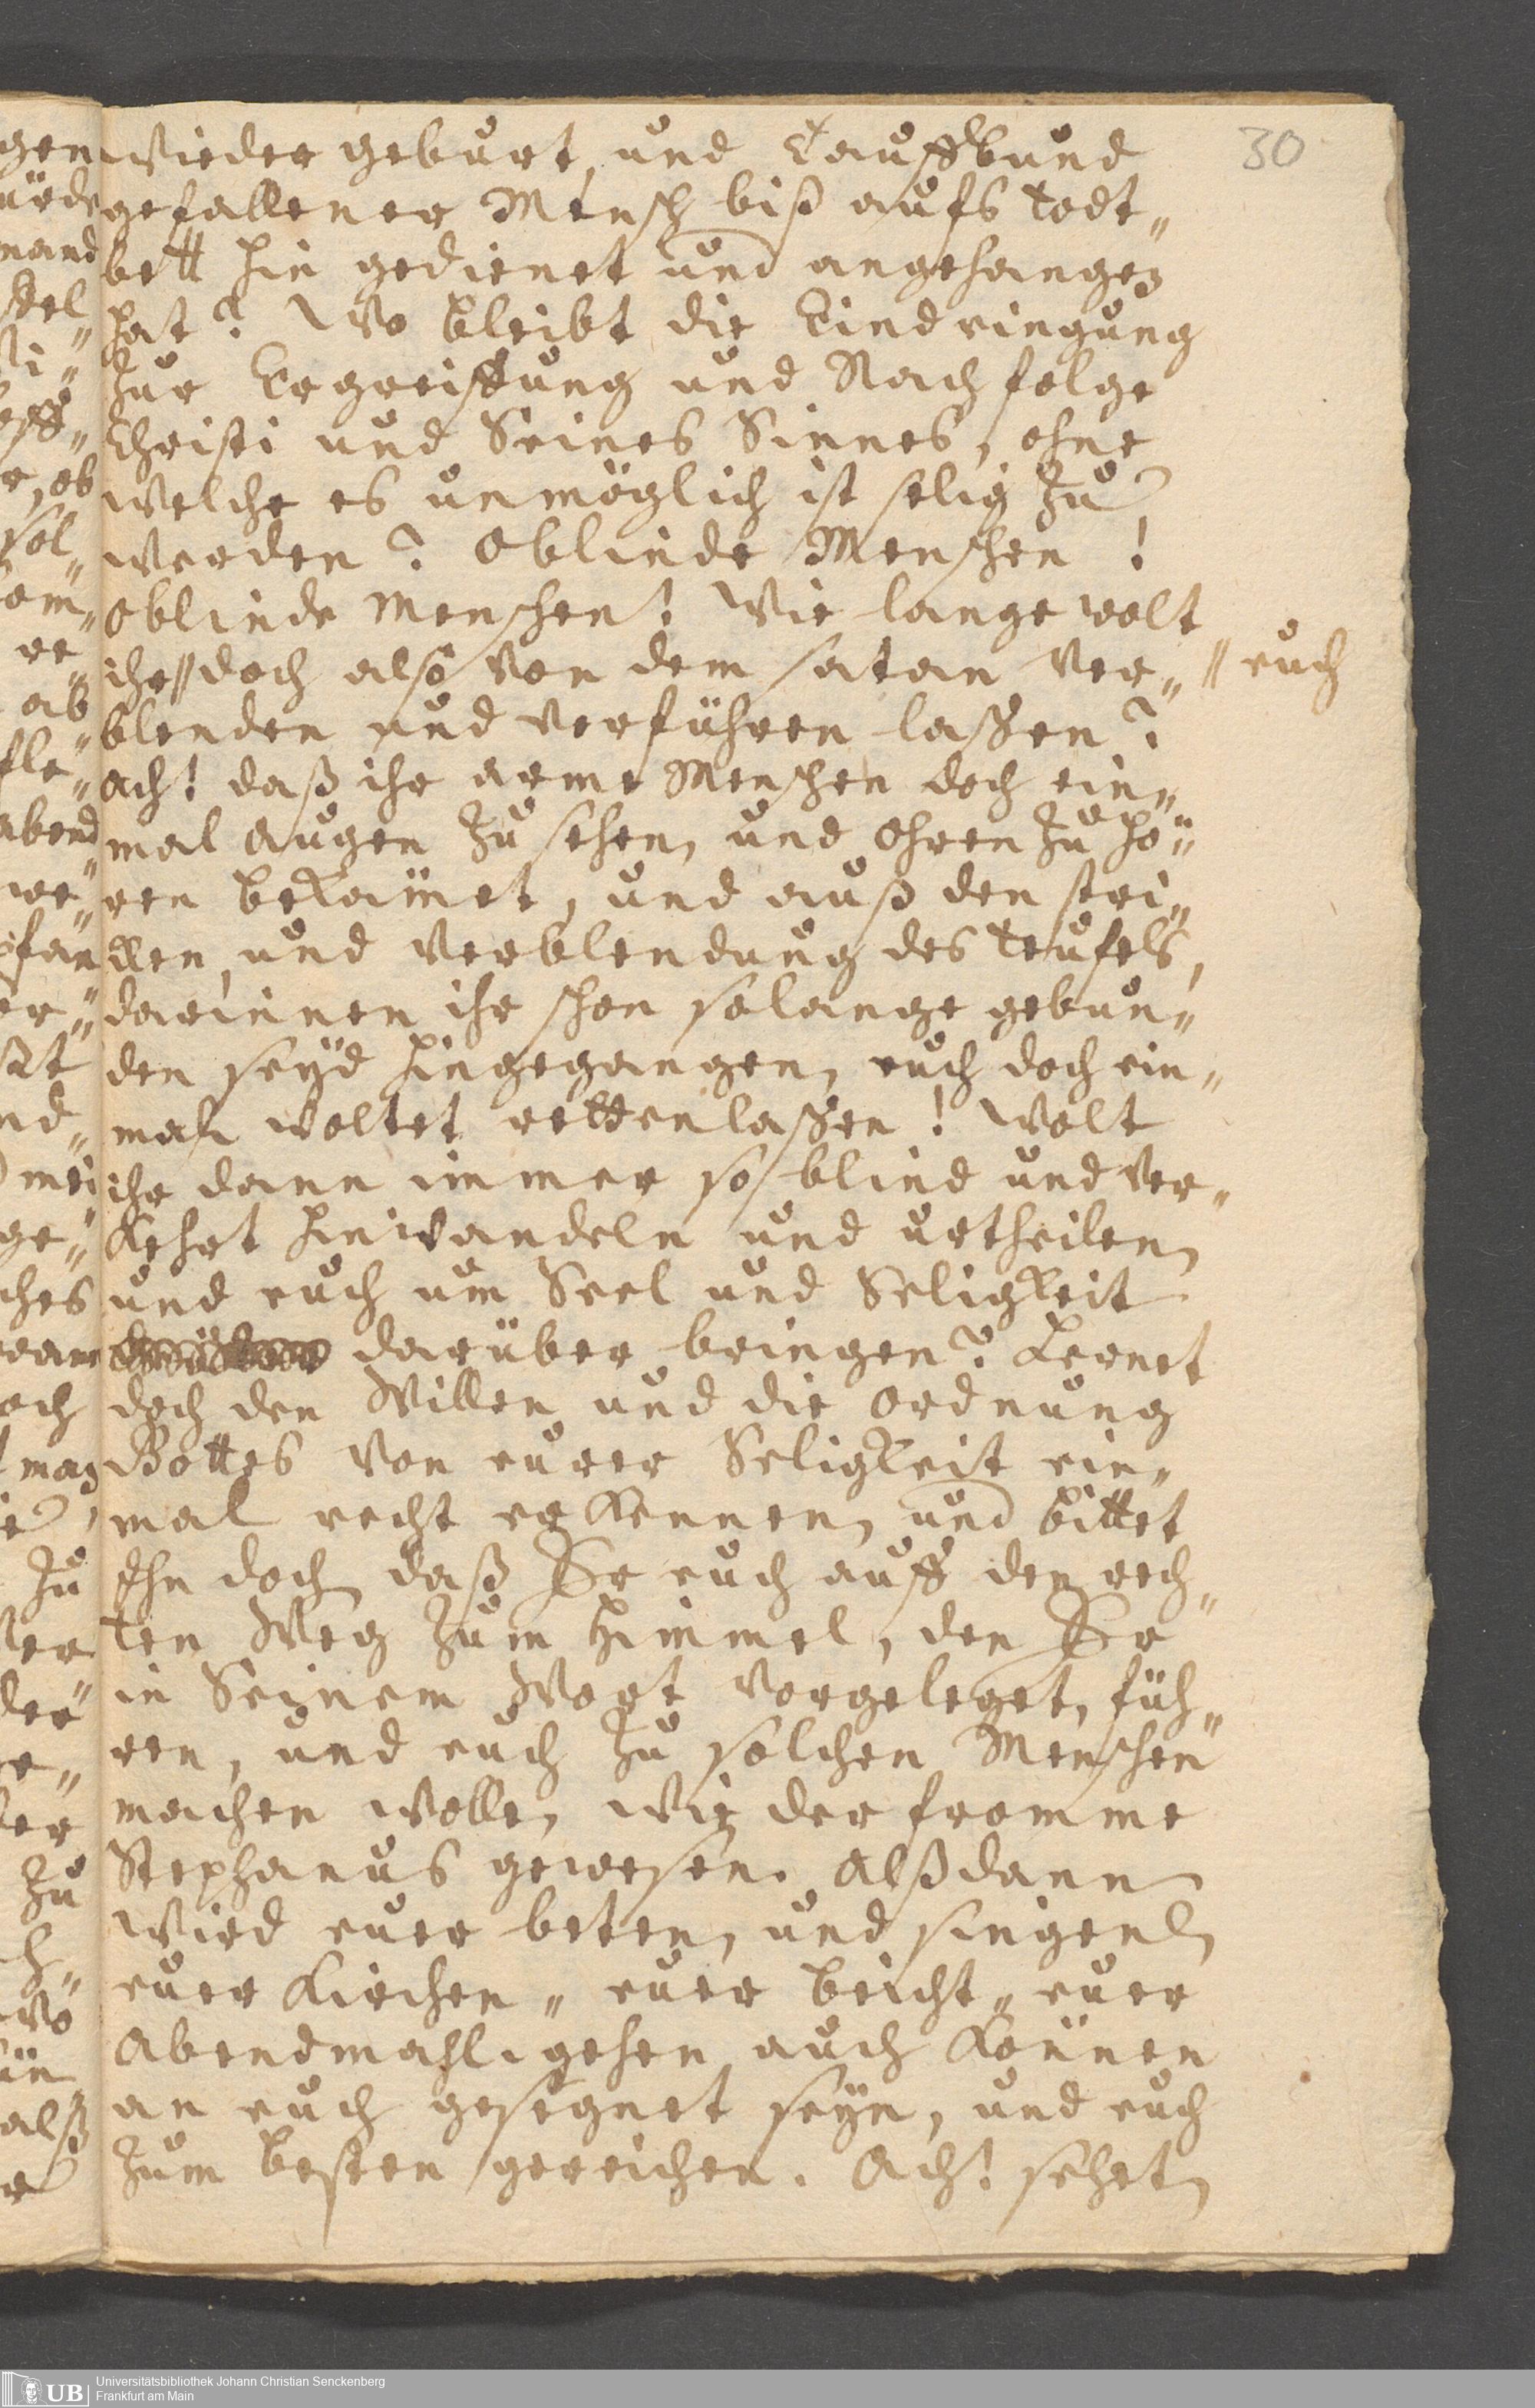 30
wieder geburt, und Tauffbund
gefallener Mensch biß aufs todt„
bett hin gedienet und angehangen
hat? Wo bleibt die Eindringung
zur Ergreiffung und Nachfolge
Christi und Seines Sinnes, ohne
welche es unmöglich ist selig zu
werden? O blinde Menschen!
O blinde Menschen! Wie lange wolt
ihr // doch also von dem satan ver„ // euch
blenden und verführen laßen?
ach! daß ihr arme Menschen doch ein„
mal augen zu sehen, und ohren zu hö„
ren bekämet, und auß den stri„
cken, und verblendung des teufels,
darinnen ihr schon solange gebun„
den seyd hingegangen, euch doch ein„
mahl woltet retten laßen! Wolt
ihr dann immer so blind und ver„
kehrt hinwandeln und urtheilen,
und euch um Seel und Seligkeit
darüber bringen? Lernet
doch den Willen und die Ordnung
Gottes von eurer Seligkeit ein„
mal recht erkennen, und bittet
Ihn doch, daß Er euch auff den rech„
ten Weg zum Himmel, den Er
in Seinem Wort vorgeleget, füh„
ren, und euch zu solchen Menschen
machen wolle, wie der fromme
Stephanus gewesen. Alßdann
wird euer beten, und singen,
euer Kirchen„ euer beicht„ euer
Abendmahl„gehen auch können
an euch gesegnet seyn, und euch
zum besten gereichen. Ach! sehet,
UB
Universitätsbibliothek Johann Christian Senckenberg
Frankfurt am Main